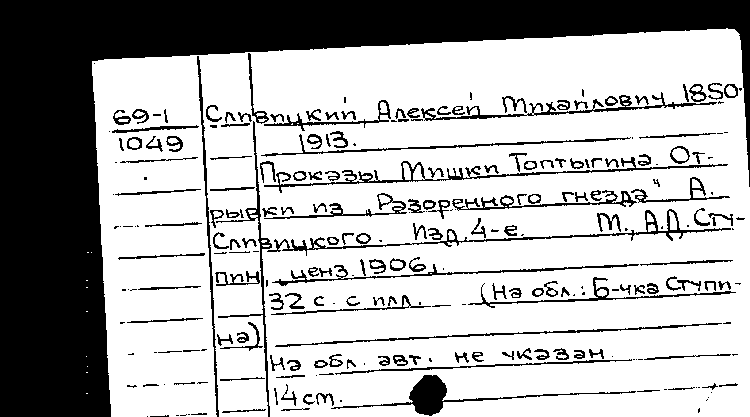 69-1 Сливицкий, Алексей Михайлович, 1850-
1049 1913.
Проказы Мишки Топтыгина. От-
рывки из "Разоренного гнезда" А.
Сливицкого. Изд. 4-е. М., А.Д. Сту-
пин, ценз. 1906.
32 с. с илл. (На обл.: Б-чка Ступи-
на)
На обл. авт. не указан
14 cm.